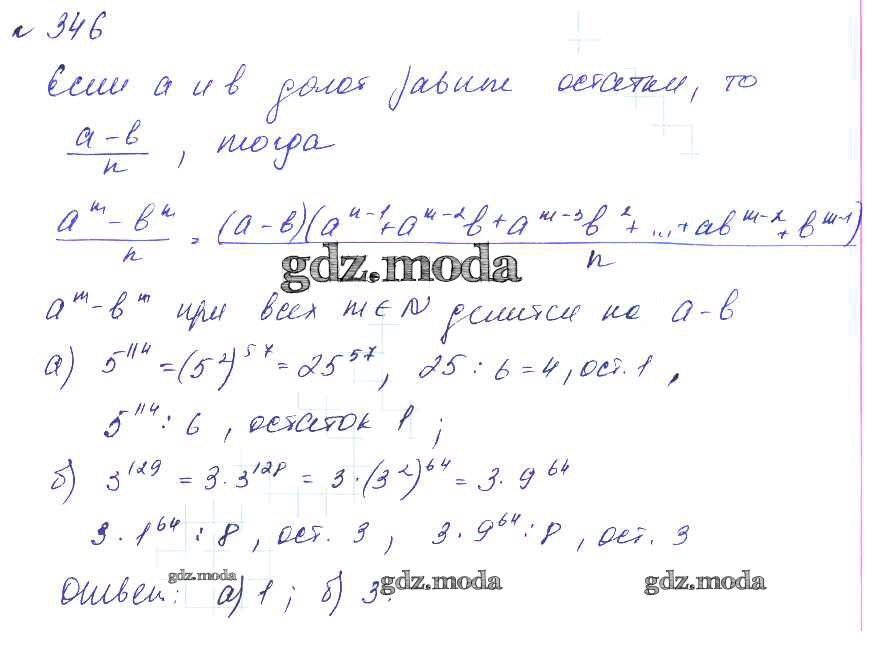 № 346
Если a и b дают равные остатки, то
(a - b)/n , тогда
(a^m - b^m)/n = (a - b)(a^{m-1} + a^{m-2}b + a^{m-3}b^2 + ... + ab^{m-2} + b^{m-1})/n
gdz.moda
a^m - b^m при всех m ∈ N делится на a - b
а) 5^{114} = (5^2)^{57} = 25^{57}, 25 : 6 = 4, ост. 1,
5^{114} : 6, остаток 1;
б) 3^{129} = 3 · 3^{128} = 3 · (3^2)^{64} = 3 · 9^{64}
3 · 1^{64} : 8, ост. 3, 3 · 9^{64} : 8, ост. 3
gdz.moda gdz.moda gdz.moda
Ответ: а) 1; б) 3.